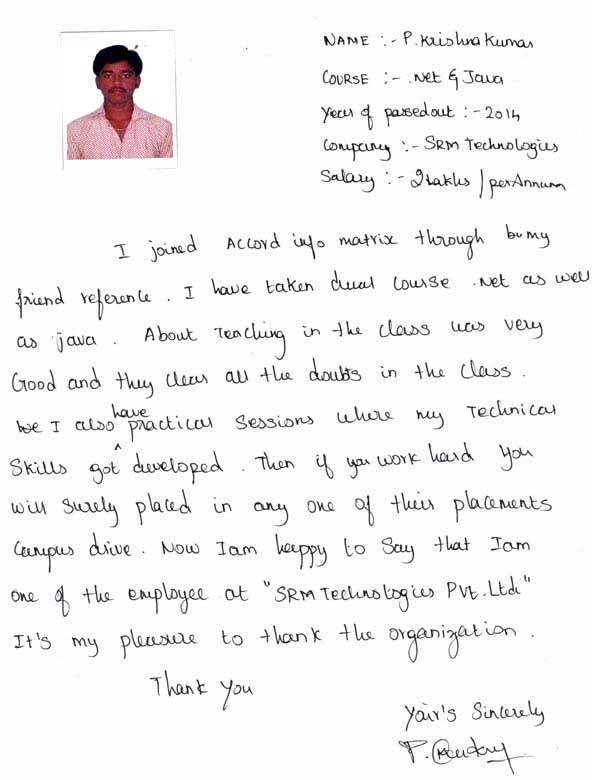 NAME :- P. Krishna Kumar
COURSE :- .Net & Java
Year of passedout :- 2014
Company :- SRM Technologies
Salary :- 2 Lakhs / per Annum
I joined Accord info matrix through by my
friend reference. I have taken dual course .Net as well
as java. About Teaching in the class was very
Good and they clear all the doubts in the class.
we I also have practical sessions where my Technical
Skills got developed. Then if you work hard you
will surely placed in any one of their placements
campus drive. Now I am happy to Say that I am
one of the employee at "SRM Technologies Pvt. Ltd"
It's my pleasure to thank the organization.
Thank You
Your's Sincerely